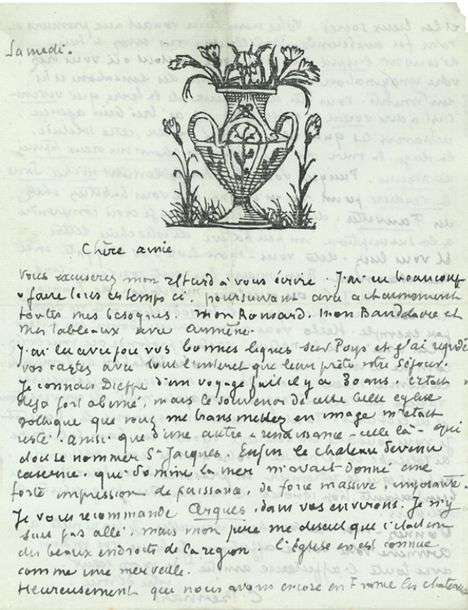 Samedi.
Chère amie
Vous excuserez mon retard à vous écrire. J'ai eu beaucoup
à faire tous ces temps ci, poursuivant avec acharnement
toutes mes besognes. Mon Ronsard. Mon Baudelaire et
mes tableaux avec
J'ai lu avec joie vos bonnes lignes sur Pourp et j'ai
vos cartes avec tout l'interet que leur prête votre séjour.
Je connais Dieppe d'un voyage fait il y a 30 ans. C'était
déja fort abimé, mais le souvenir de cette belle église
gothique que vous me transmettez en image m'était
resté. Ainsi que d'une autre - renaissance - celle là - qui
doit se nommer St Jacques. Enfin le chateau devenu
caserne, qui domine la mer m'avait donné une
forte impression de puissance, de force massive, imposante.
Je vous recommande Arques, dans vos environs. Je n'y
suis pas allé, mais mon pere me disait que c'etait un
des beaux endroits de la region. L'église en est connue
comme une merveille.
Heureusement que nous avons encore en France les chateaux